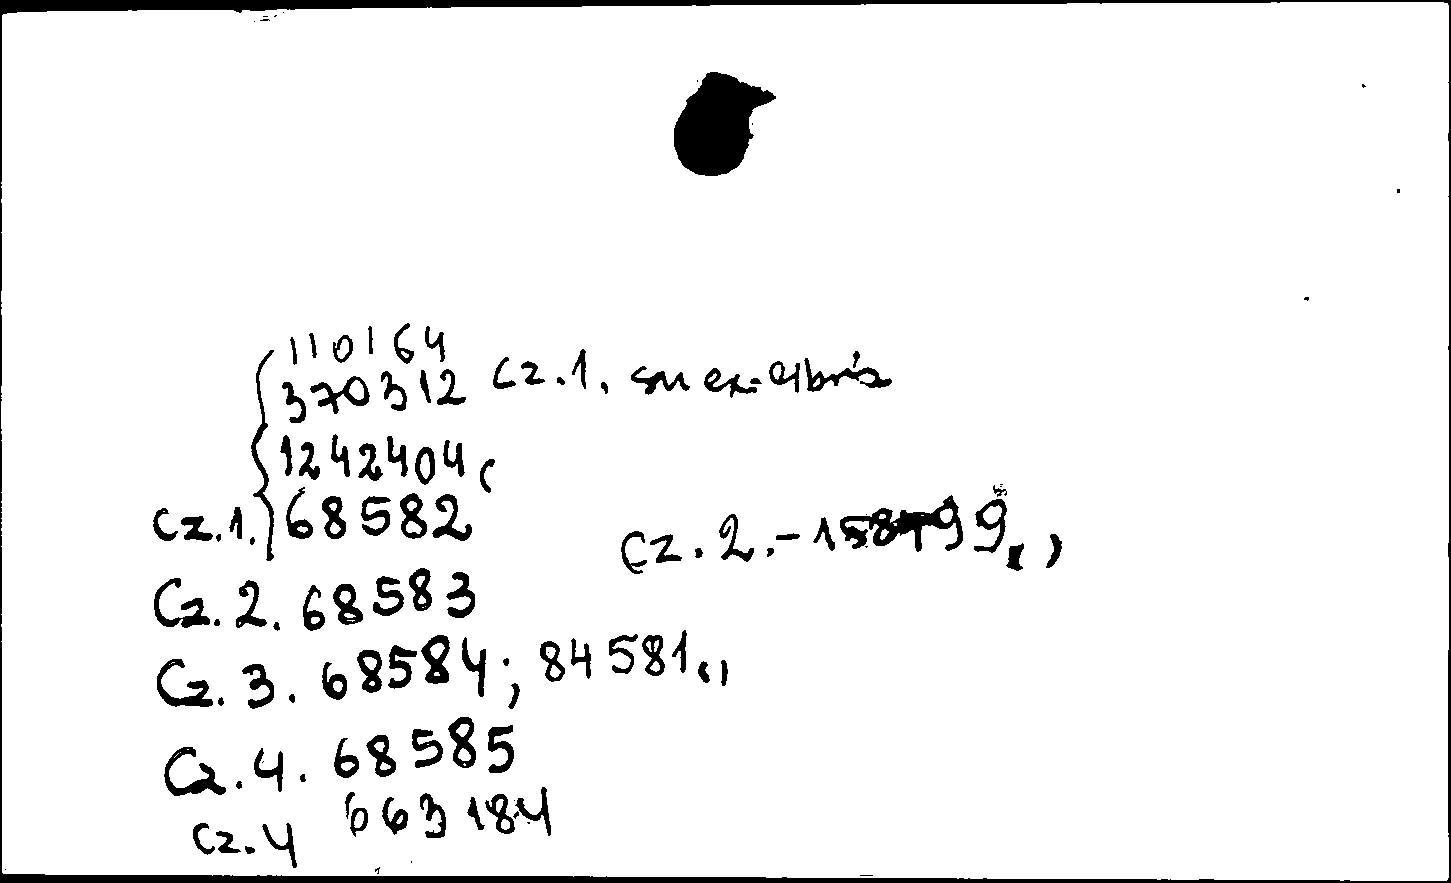 110164
370312 cz.1. ex-libris
1242404
cz.1. 68582
cz.2.-158499
Cz.2. 68583
Cz.3. 68584; 84581
Cz.4. 68585
cz.4 663184